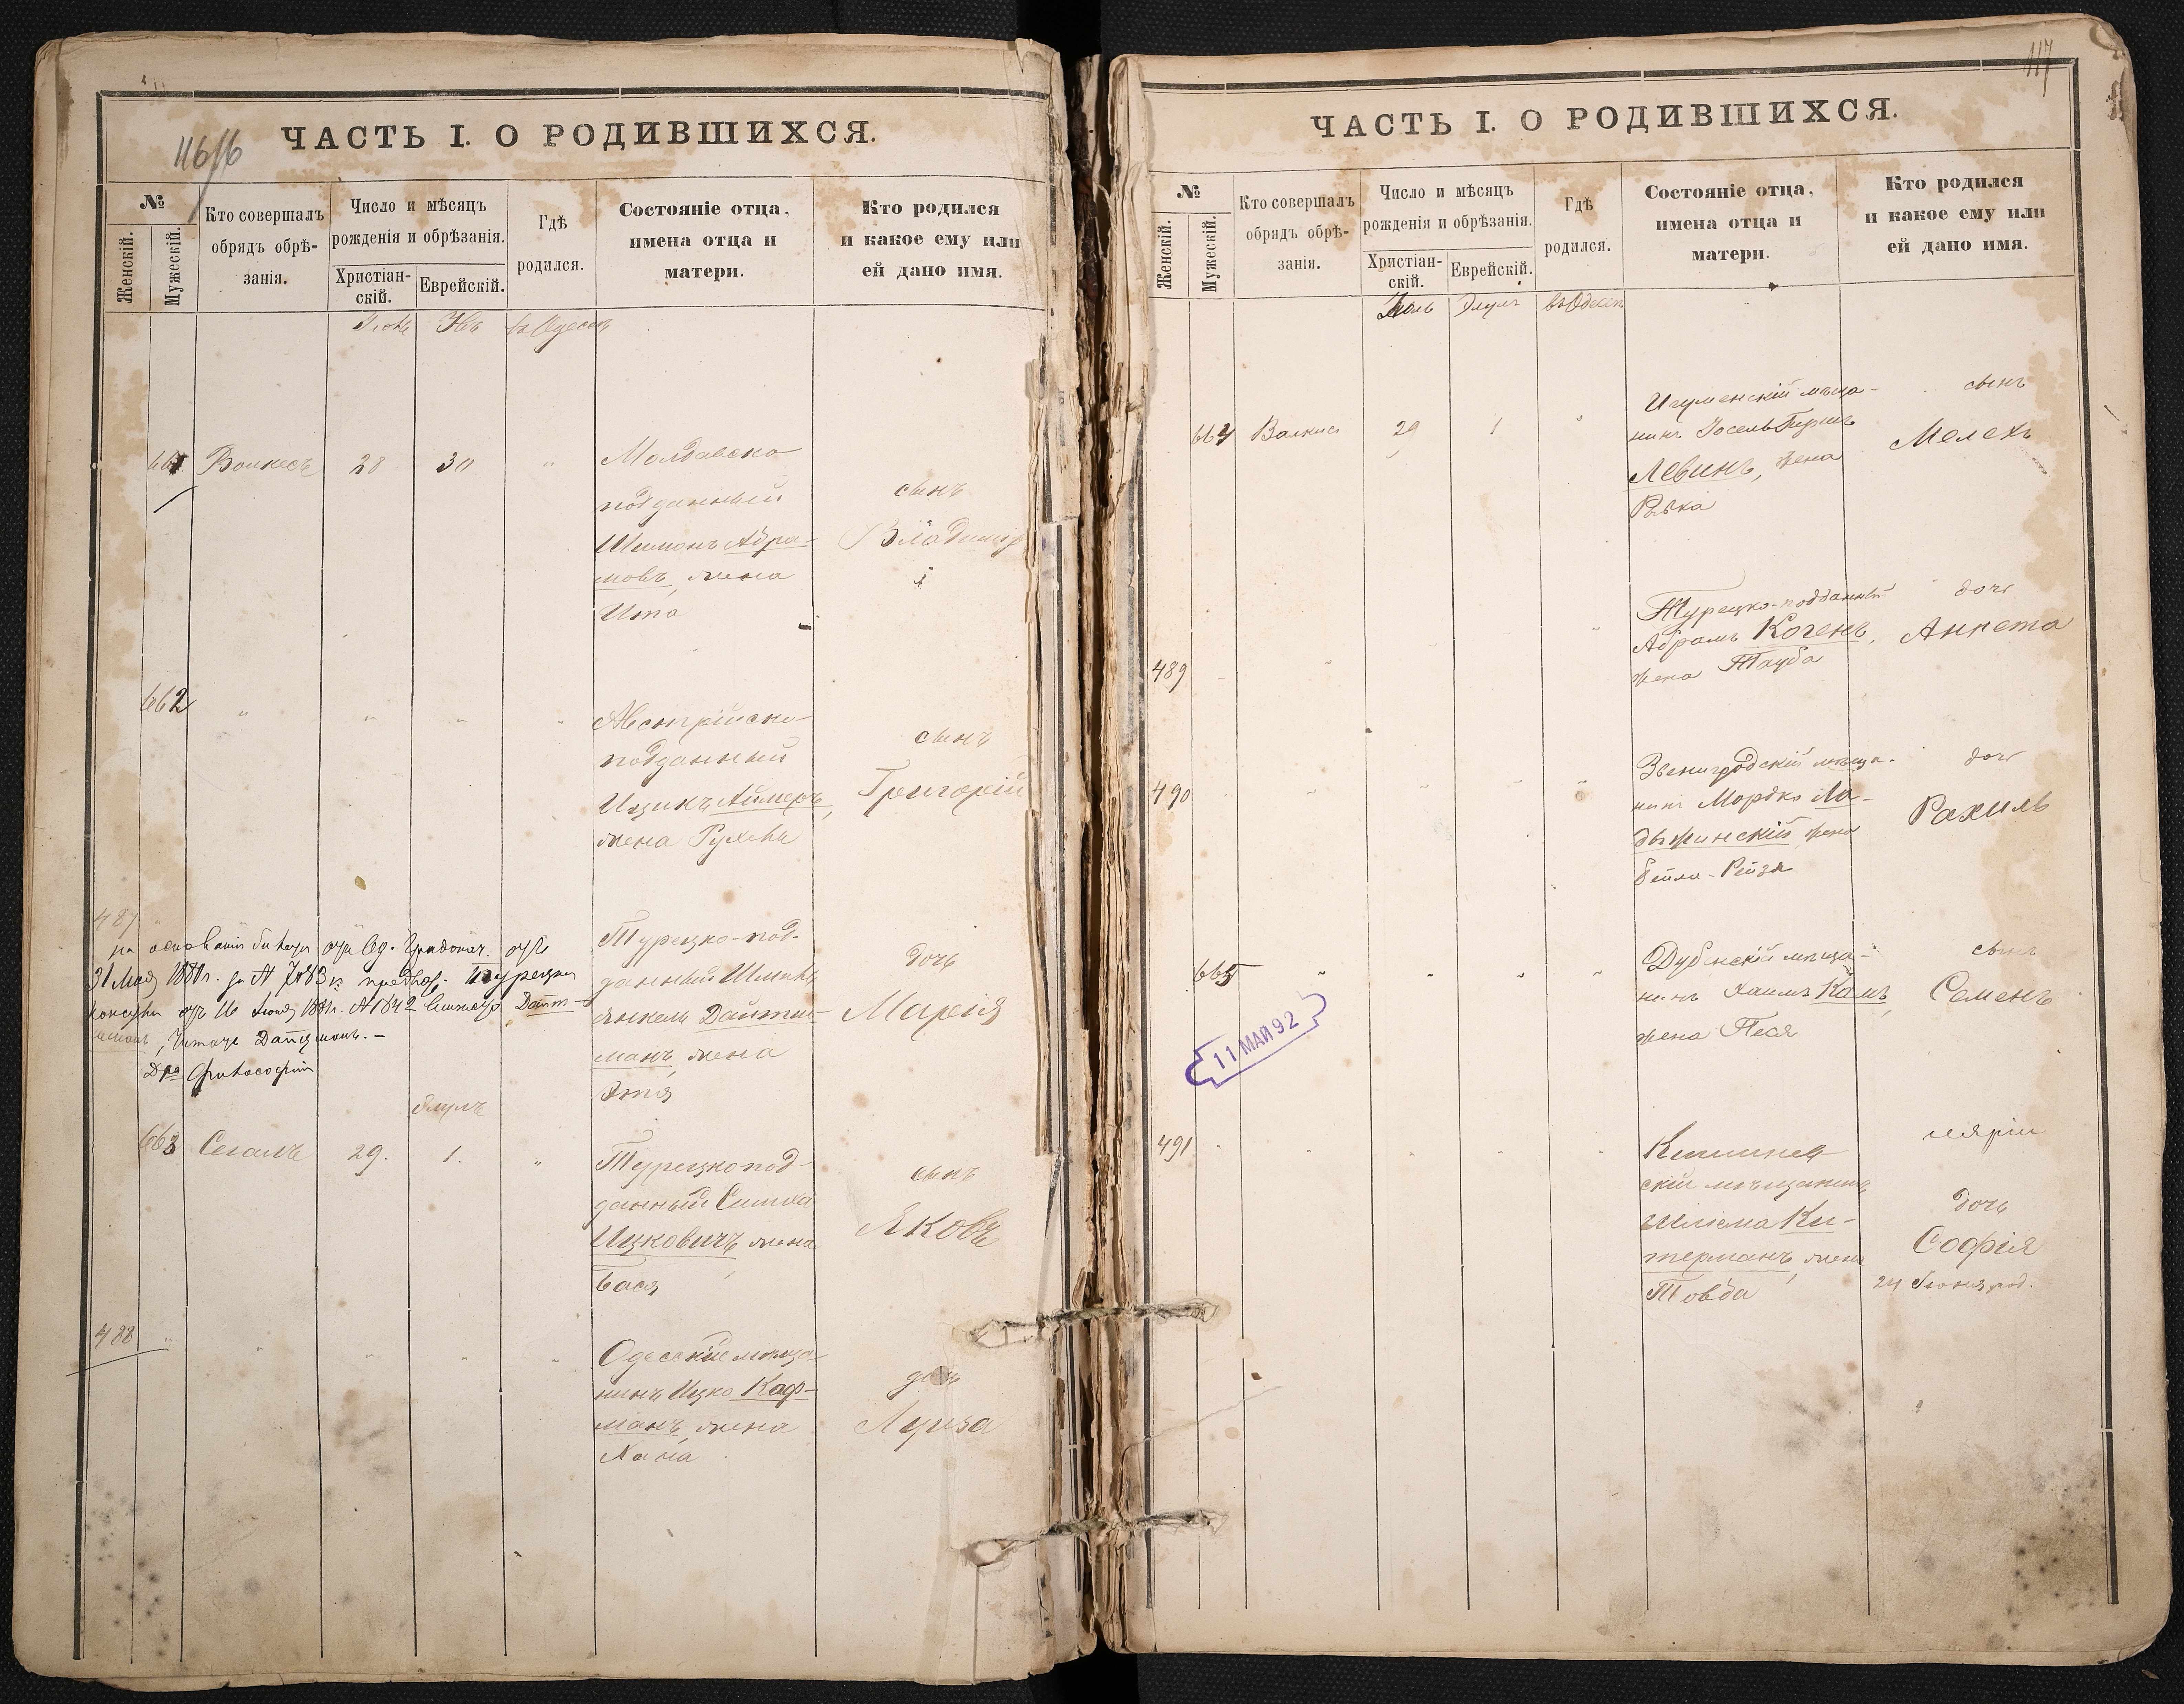 116
ЧАСТЬ I. О РОДИВШИХСЯ.
№
Женскій.
Мужескій.
Кто совершалъ
обрядъ обрѣ-
занія.
Число и мѣсяцъ
рожденія и обрѣзанія.
Христіан-
скій.
Еврейскій.
Гдѣ
родился.
Состояніе отца,
имена отца и
матери.
Кто родился
и какое ему или
ей дано имя.
въ Одессѣ
661 28 30 "
Молдавско
подданный
Шимонъ Абра-
мовъ, жена
Ита
сынъ
Владимир
662 " " " "
Австрійско-
подданный
Ицикъ Аймеръ,
жена Рухель
сынъ
Григорій
487
на основаніи
31 Мая 1881 г. за № 7483
Турецко-под-
данный
Янкель Дайтш-
манъ, жена
Этя
дочь
Марія
Элулъ
663 Сегалъ 29. 1. "
Турецкопод-
данный Симха
Ицковичъ, жена
Бася
сынъ
Яковъ
488 " " " " "
Одесскій мѣща-
нинъ Ицко Кауф-
манъ, жена
Хана
дочь
Луиза
117
ЧАСТЬ I. О РОДИВШИХСЯ.
№
Женскій.
Мужескій.
Кто совершалъ
обрядъ обрѣ-
занія.
Число и мѣсяцъ
рожденія и обрѣзанія.
Христіан-
скій.
Еврейскій.
Гдѣ
родился.
Состояніе отца,
имена отца и
матери.
Кто родился
и какое ему или
ей дано имя.
Элулъ въ Одессѣ
664 29 1 "
Игуменскій мѣща-
нинъ Іосель Гершъ
Левинъ, жена
Рывка
сынъ
Мелехъ
489
Турецко-подданный
Абрамъ Когенъ,
жена Тауба
дочь
Аннета
490
Звенигородскій мѣща-
нинъ Мордко Ла-
дыжинскій жена
Бейла-Рейзя
дочь
Рахиль
665 " " " "
Дубенскій мѣща-
нинъ Хаимъ Кацъ,
жена Песя
сынъ
Семенъ
11 МАЙ 92
491
Кишинев
скій мѣщанинъ
Шлёма Ки-
терманъ, жена
Товба
дочь
Софія
24 Іюня род.